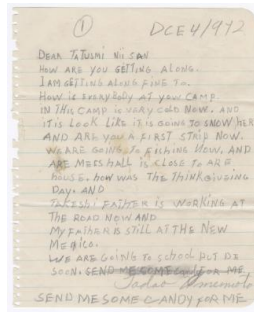 ① DCE4/972
DEAR TATUSMI NII SAN
HOW ARE YOU GETTING ALONG.
I AM GETTING ALONG FINE TO.
HOW IS EVERYBODY AT YOUR CAMP.
IN THIS CAMP IS VERY COLD NOW. AND
IT IS LOOK LIKE IT IS GOING TO SNOW HER
AND ARE YOU A FIRST STRIP NOW.
WE ARE GOING TO FISHING NOW. AND
ARE MESS HALL IS CLOSE TO ARE
HOUSE. HOW WAS THE THINKGIVEING
DAY. AND
TAKESHI FATHER IS WORKING AT
THE ROAD NOW AND
MY FATHER IS STILL AT THE NEW
MEQICO.
WE ARE GOING TO SCHOOL
SOON. SEND ME SOME CANDY FOR ME
Tadao
SEND ME SOME CANDY FOR ME